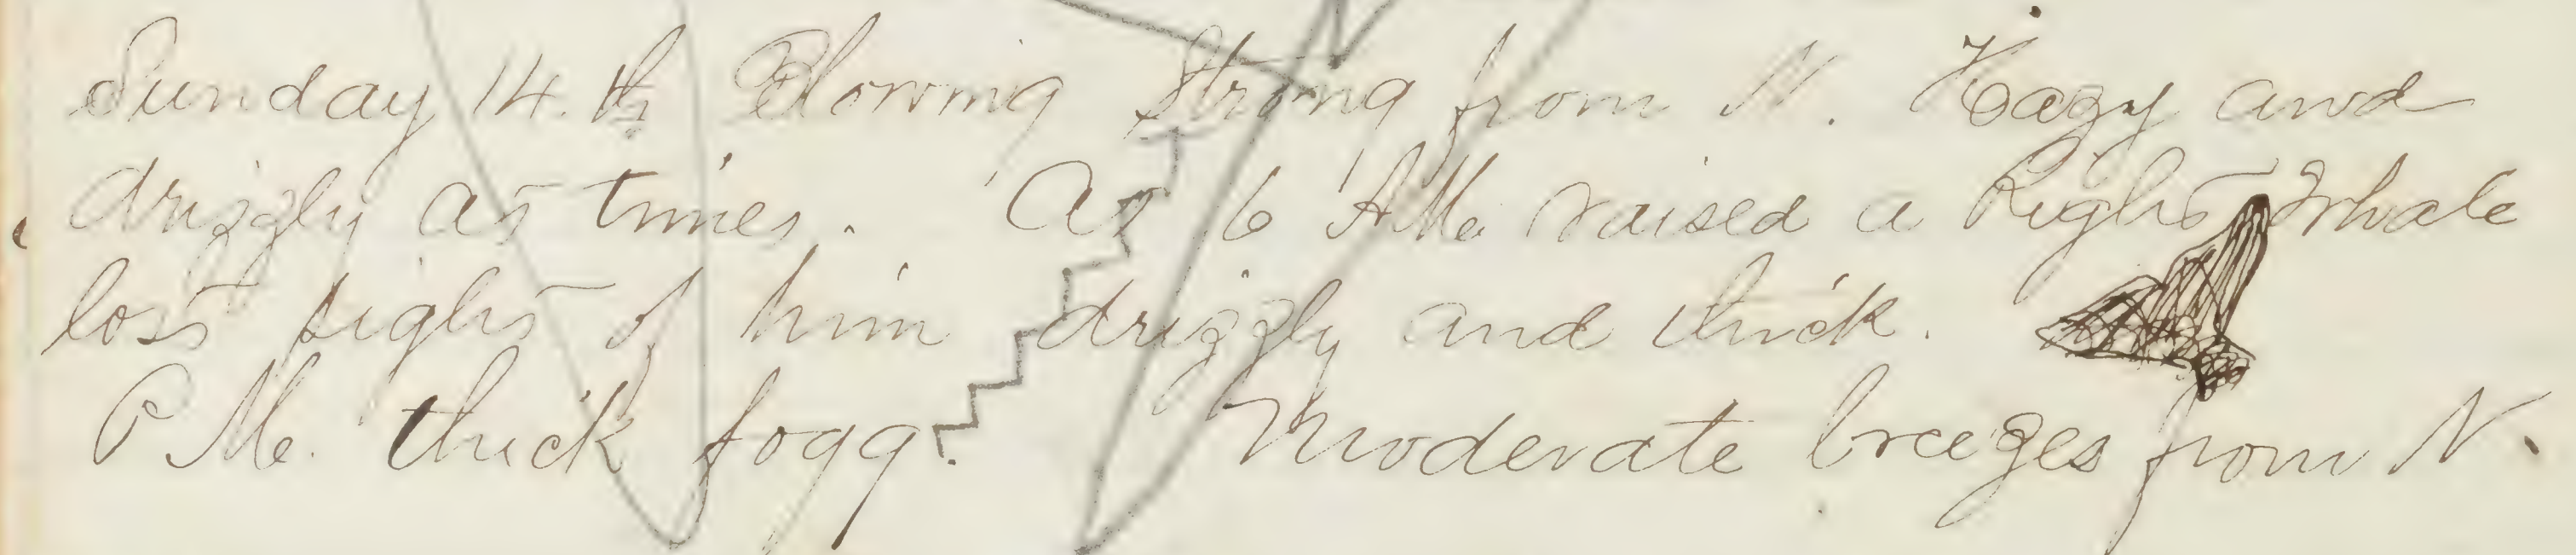 Sunday 14.th Blowing Strong from N. Hazy and
drizzly at times. At 6 AM. raised a Right Whale
lost sight of him drizzly and thick.
P M. thick fogg. Moderate breezes from N.